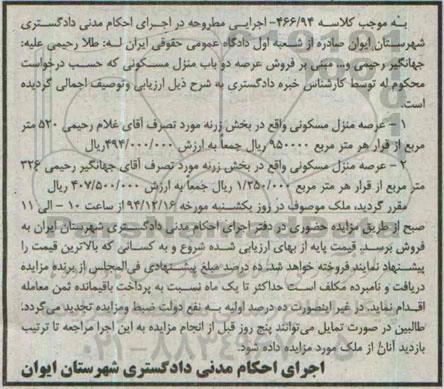 به موجب کلاسه ۴۶۶/۹۴- اجرایی مطروحه در اجرای احکام مدنی دادگستری
شهرستان ایوان صادره از شعبه اول دادگاه عمومی حقوقی ایران له: طلا رحیمی علیه:
جهانگیر رحیمی و... مبنی بر فروش عرصه دو باب منزل مسکونی که حسب درخواست
محکوم له توسط کارشناس خبره دادگستری به شرح ذیل ارزیابی وتوصیف اجمالی گردیده
است.
۱ - عرصه منزل مسکونی واقع در بخش زرنه مورد تصرف آقای غلام رحیمی ۵۲۰ متر
مربع از قرار هر متر مربع ۹۵۰۰۰۰ ریال جمعاً به ارزش ۴۹۴/۰۰۰/۰۰۰ریال
۲ - عرصه منزل مسکونی واقع در بخش زرنه مورد تصرف آقای جهانگیر رحیمی ۳۲۶
متر مربع از قرار هر متر مربع ۱/۲۵۰/۰۰۰ ریال جمعاً به ارزش ۴۰۷/۵۰۰/۰۰۰ ریال
مقرر گردید، ملک موصوف در روز یکشنبه مورخه ۹۴/۱۲/۱۶ از ساعت ۱۰ - الی ۱۱
صبح از طریق مزایده حضوری در دفتر اجرای احکام مدنی دادگستری شهرستان ایوان به
فروش برسد. قیمت پایه از بهای ارزیابی شده شروع و به کسانی که بالاترین قیمت را
پیشنهاد نمایند فروخته خواهد شد، ده درصد مبلغ پیشنهادی فی‌المجلس از برنده مزایده
دریافت و نامبرده مکلف است حداکثر تا یک ماه نسبت به پرداخت باقیمانده ثمن معامله
اقدام نماید. در غیر اینصورت ده درصد اولیه به نفع دولت ضبط ومزایده تجدید می‌گردد.
طالبین در صورت تمایل می‌توانند پنج روز قبل از انجام مزایده به این اجرا مراجعه تا ترتیب
بازدید آنان از ملک مورد مزایده داده شود.
اجرای احکام مدنی دادگستری شهرستان ایوان